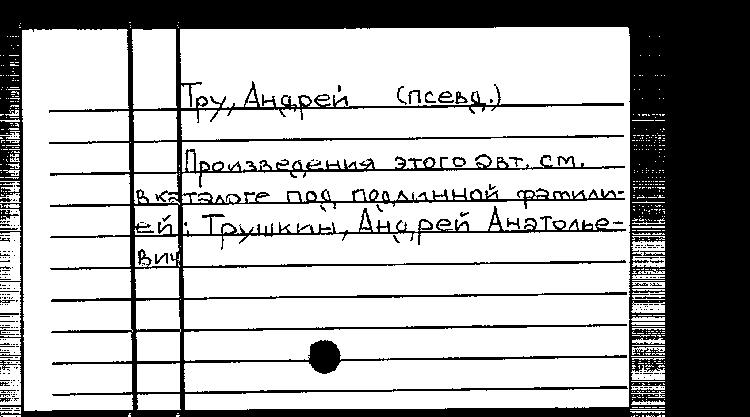 Тру, Андрей (псевд.)
Произведения этого авт. см.
в каталоге под подлинной фамили-
ей: Трушкин, Андрей Анатолье-
вич